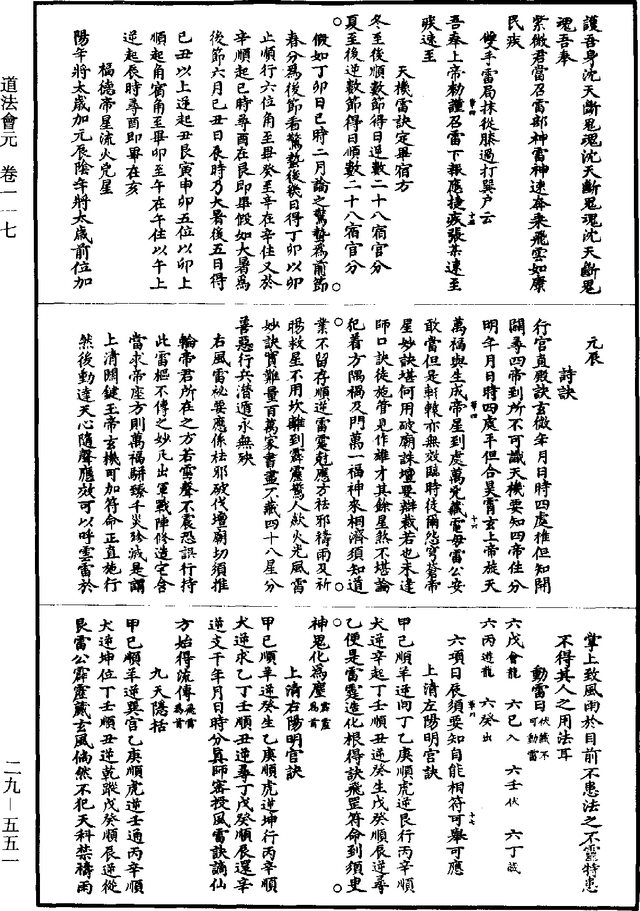 護吾身沈天斷鬼魂沈天斷鬼魂沈天斷鬼
魂吾奉
紫微君當召雷部神雷神速奔來飛雲如康
民疾
雙手雷局抹從膝過打巽户云
吾奉上帝勑謹召雷下報應捷疾張某速至
疾速至
天機雷訣定畢宿方
冬至後順數節得日逆數二十八宿官分
夏至後逆數節得日順數二十八宿官分
假如丁卯日巳時二月論之驚蟄爲前節
春分爲後節看驚蟄後幾日得丁卯以卯
止順行六位角至畢癸至辛在辛住又於
辛順起巳時尋酉在艮即畢假如大暑爲
後節六月己丑日辰時乃大暑後五日得
己丑以上逆起丑艮寅申卯五位以卯上
順起角宿角至畢卯至午在午住以午上
逆起辰時尋酉即畢在亥
福德帝星流火兇星
陽年將太歲加元辰陰年將太歲前位加
元辰
詩訣
行官真殿訣玄微年月日時四處推但知開
闢尋四帝到所不可識天機要知四帝住分
明年月日時四處平但合昊霄玄上帝旋天
萬福與生成帝星到處萬兇藏電母雷公安
敢當但是軒轅亦無效臨時後爾怨穹蒼帝
星妙訣堪何用破廟誅壇要辯裁若也未逢
師口訣徒施管見作雄才其餘星煞不堪論
犯着方隅禍及門萬一福神來相濟須知道
業不留存順逆雷霆剋應方祛邪禱雨及祈
暘救星不用坎離到霹靂驚人歘火光風雷
妙訣實難量百萬家書盡不藏四十八星分
善惡行兵潛遁永無殃
右風雷祕要應係祛邪破伐壇廟切須推
輪帝君所在之方若雲聲不震恐誤行持
此雷樞不傳之妙凡出軍戰陣修造宅舍
當求帝座方則萬福駢臻千災殄滅是謂
上清關鍵玉帝玄機可加符命正直施行
然後動達天心隨聲應效可以呼雲雷於
掌上致風雨於目前不患法之不靈特患
不得其人之用法耳
動雷日伏藏不可動雷
六戊會龍 六巳入 六壬伏 六丁藏
六丙遊龍 六癸出
六項日辰須要知自能相符可舉可應
上清左陽明官訣
甲己順羊逆向丁乙庚順虎逆艮行丙辛順
大逆辛起丁壬順丑逆癸生戊癸順辰逆尋
乙便是雷霆造化根得訣飛罡符命到須臾
神鬼化爲塵
上清右陽明官訣
甲己順羊逆癸生乙庚順虎逆坤行丙辛順
犬逆求乙丁壬順丑逆尋丁戊癸順辰還辛
逆支干年月日時分真師密授風雷訣謫仙
方始得流傳
九天隱括
甲己順羊逆巽宫乙庚順虎逆壬通丙辛順
犬逆坤位丁壬順丑逆乾蹤戊癸順辰逆從
艮雷公霹靂藏玄風倘然不犯天科禁禱雨
道法會元 卷一一七
二九—五五一